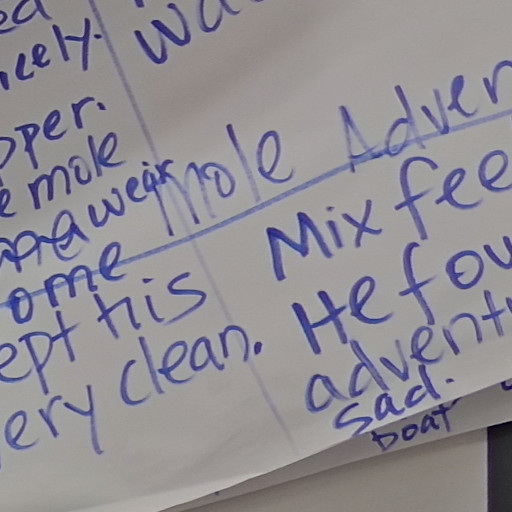 ed
icely.
pper.
e mole
wear
ome
ept his
ery clean.
wa
Mole Adven
Mix fee
He fou
adventu
sad.
boat